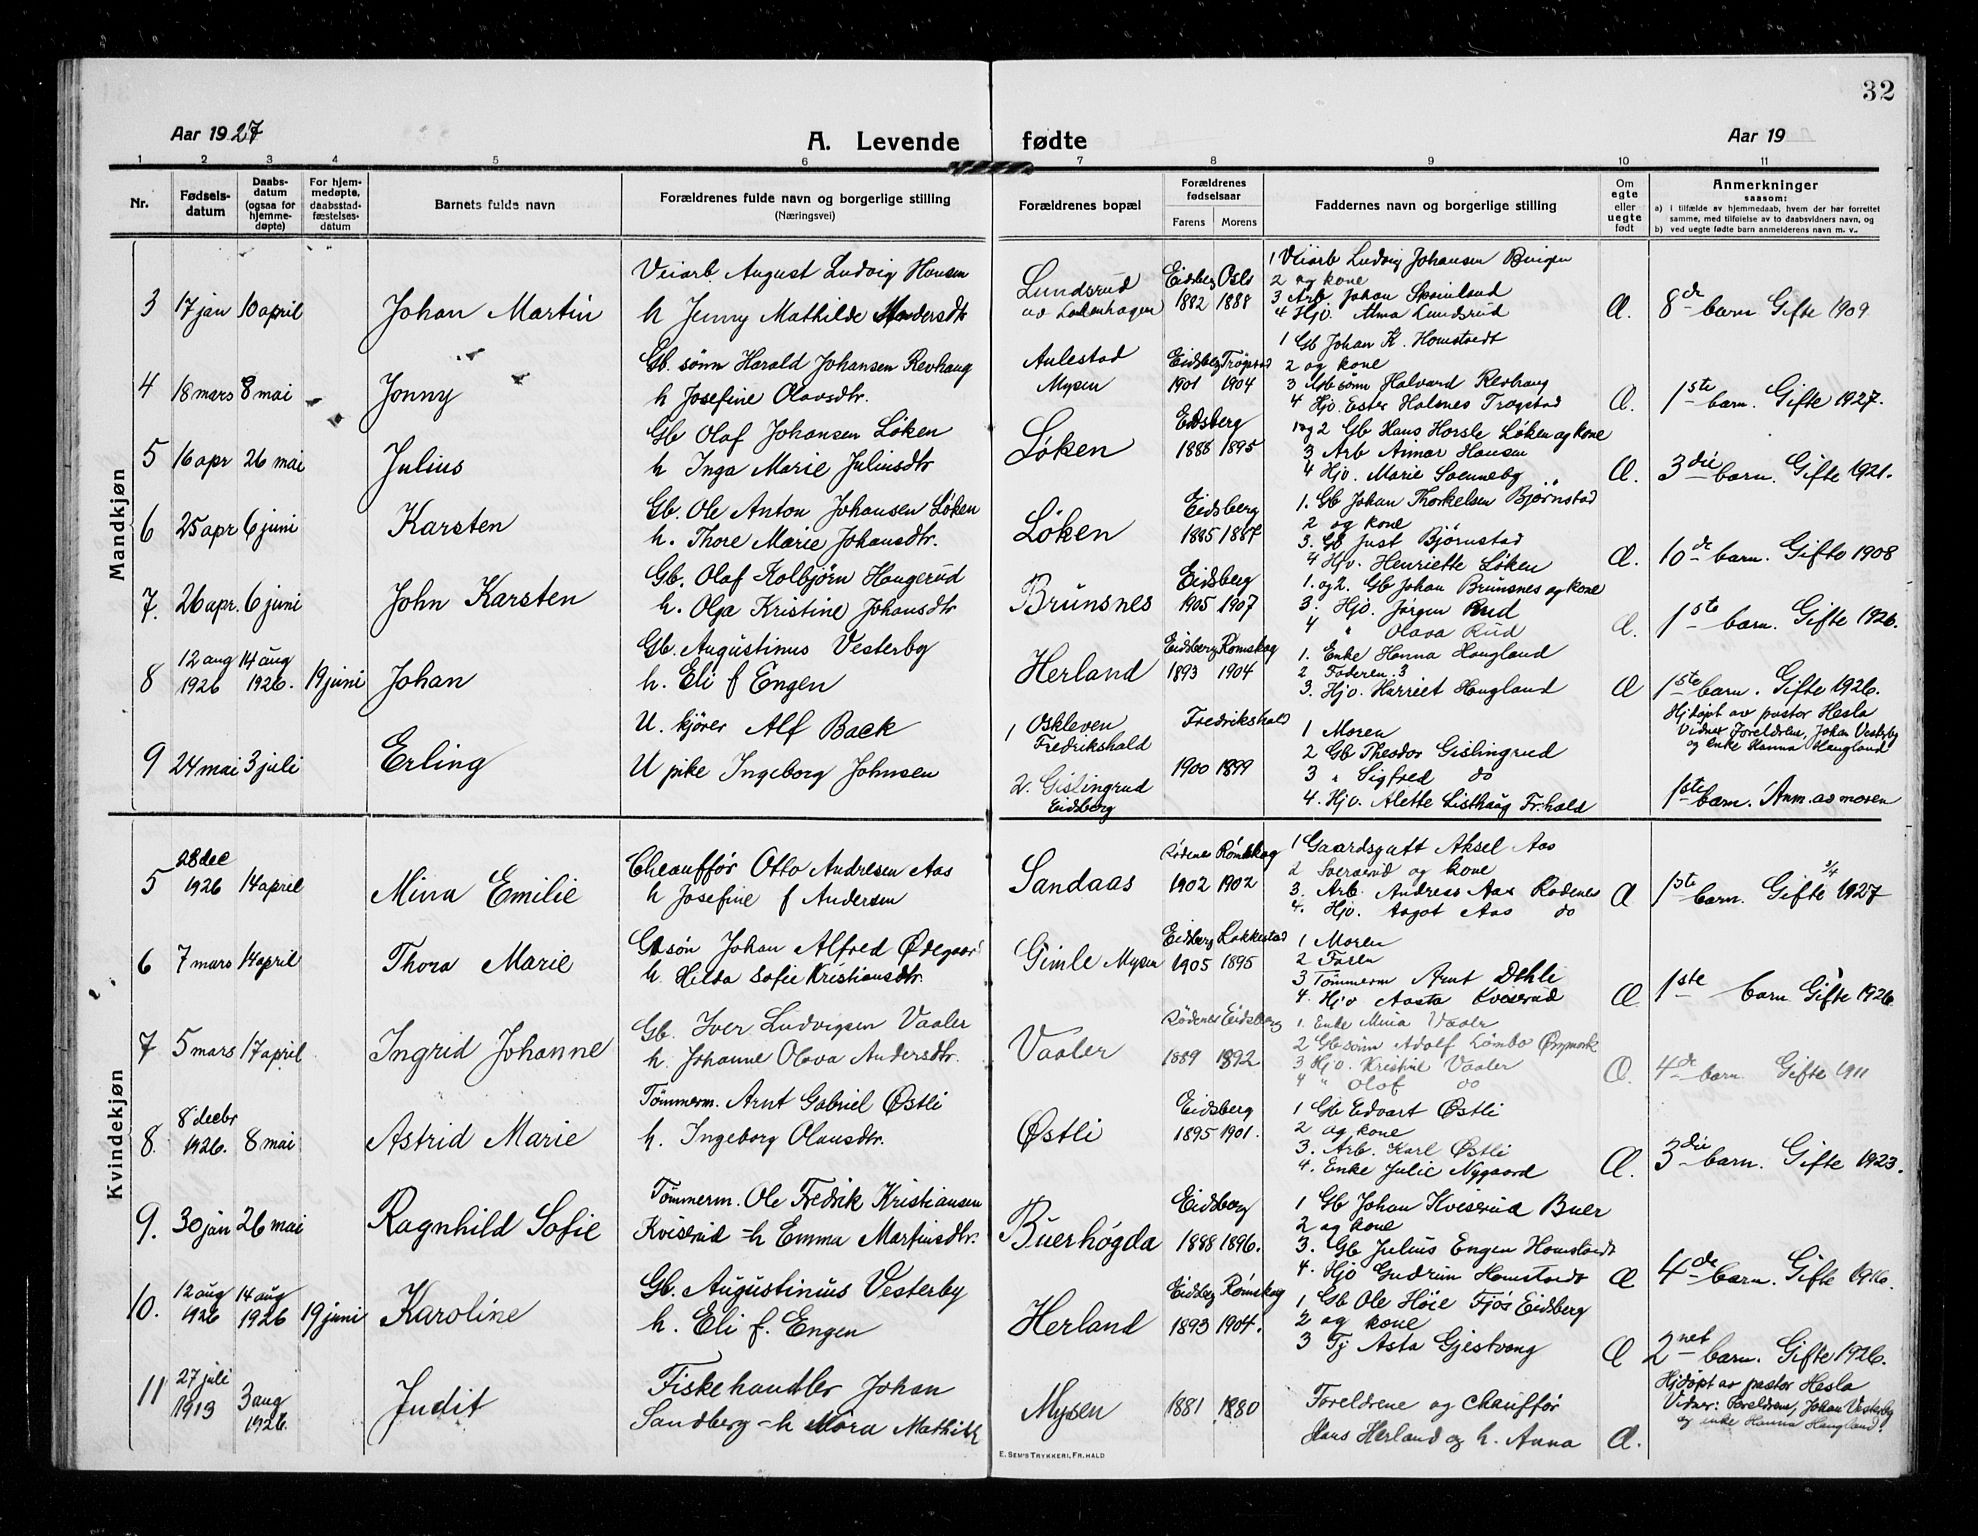 32
Aar 1927
A. Levende fødte
Aar 19
1 2 3 4 5 6 7 8 9 10 11
Nr.
Fødsels-
datum
Daabs-
datum
(ogsaa for
hjemme-
døpte)
For hjem-
medøpte,
daabsstad-
fæstelses-
datum
Barnets fulde navn
Forældrenes fulde navn og borgerlige stilling
(Næringsvei)
Forældrenes bopæl
Forældrenes
fødselsaar
Farens Morens
Faddernes navn og borgerlige stilling
Om
egte
eller
uegte
født
Anmerkninger
saasom:
a) i tilfælde av hjemmedaab, hvem der har forrettet
samme, med tilføielse av to daabsvidners navn, og
b) ved uegte fødte barn anmelderens navn m. v..
Mandkjøn
3 17 jan 10 april Johan Martin
Veiarb August Ludvig Hansen
h Jenny Mathilde
Lundsrud
Eidsberg Oslo
1882 1888
1 Veiarb Ludvig Johansen
2 og kone
3 Arb Johan
4 Hjv. Alma Lundsrud
Æ.
8de barn Gifte 1909
4 18 mars 8 mai Jonny
Gb. sønn Harald Johansen Revhaug
h Josefine Olavsdtr.
Aulestad
Mysen
Eidsberg Trøgstad
1901 1904
1 Gb Johan K. Homstvedt
2 og kone
3 Gb sønn Halvard Revhaug
4 Hjv. Ester Holsnes Trøgstad
Æ.
1ste barn. Gifte 1927.
5 16 apr 26 mai Julius
Gb Olaf Johansen Løken
h Inga Marie Juliusdtr
Løken
Eidsberg
1886 1895
1 og 2 Gb Hans Horsle Løken og kone
3 Arb Annar Hansen
4 Hjv. Marie Svenneby
Æ.
3die barn. Gifte 1921.
6 25 apr 6 juni Karsten
Gb. Ole Anton Johansen Løken
h. Thore Marie Johansdtr.
Løken
Eidsberg
1885
1. Gb Johan Thorkelsen Bjørnstad
2 og kone
3. Gb Just Bjørnstad
4 Hjv. Henriette Løken
Æ.
10de barn. Gifte 1908
7. 26 apr. 6 juni John Karsten
Gb. Olaf Kolbjørn Haugerud
h. Olga Kristine Johansdtr
Brünsnes
Eidsberg
1905 1907
1. og 2. Gb Johan Brunsnes og kone
3. Hjv. Jørgen Rud
4 " Olava Rud
Æ.
1ste barn. Gifte 1926.
8 12 aug 1926 14 aug 1926. 19 juni Johan
Gb. Augustinus Vesterby
h. Eli f Engen
Herland
Eidsberg Rømskog
1893 1904
1. Enke Hanna Haugland
2 Faderen. 3
3. Hjv. Harriet Haugland
Æ
1ste barn. Gifte 1926.
Hjdøpt av pastor Hesla
Vidner Foreldrene, Johan Vesterby
og enke Hanna Haugland
9 24 mai 3 juli Erling
U. kjører Alf Back
U pike Ingeborg Johnsen
1 Oskleven
Fredrikshald
2. Gislingrud
Eidsberg
Fredrikshald
1900 1899
1 Moren
2 Gb Theodor Gislingrud
3 " Sigfred do
4. Hjv. Alette Listhaug Fr.hald
1ste barn. Anm. av moren
Kvindekjøn
5 28 dec 1926 14 april Mina Emilie
Cheaufför Otto Andresen Aas
h Josefine f Andersen
Sandaas
Rødenes Rømskog
1902 1902
1 Gaardsgutt Aksel Aas
2 og kone
3. Arb. Andreas Aas Rødenes
4. Hjv. Aagot Aas do
Æ
1ste barn. Gifte 3/4 1927
6 7 mars 14 april Thora Marie
Gbsøn Johan Alfred Ødegaard
h. Hilda Sofie Kristiansdtr.
Gimle Mysen
Eidsberg
1905 1895
1 Moren
2 Faren
3 Tømmerm Arnt Dehli
4. Hjv Aasta Kviserud
Æ
1ste barn Gifte 1926.
7 5 mars 17 april Ingrid Johanne
Gb. Iver Ludvigsen Vaaler
h. Johanne Olava Andersdtr.
Vaaler
Rødenes Eidsberg
1889 1892
1. Enke Mina Vaaler
2 Gbsønn Adolf Lømbo Øymark
3 Hjv. Kristine Vaaler
4 " Olaf do
Æ.
4de barn Gifte 1911
8. 8 decbr 1926. 8 mai Astrid Marie
Tømmerm. Arnt Gabriel Østli
h. Ingeborg Olausdtr.
Østli
Eidsberg
1895 1901.
1 Gb Edvart Østli
2 og kone
3. Arb. Karl Østli
4. Enke Julie Nygaard
Æ.
3die barn. Gifte 1923.
9. 30 jan 26 mai Ragnhild Sofie
Tømmerm. Ole Fredrik Kristiansen
Kviserud - h Emma Martinsdtr.
Büerhøgda
Eidsberg
1888 1896.
1 Gb Johan Kviserud Buer
2 og kone
3. Gb Julius Engen Homstvedt
4. Hjv Gudrun Homstvedt
Æ
4de barn. Gifte 1916.
10. 12 aug 1926 14 aug 1926 19 juni Karoline
Gb. Augustinus Vesterby
h. Eli f. Engen
Herland
Eidsberg Rømskog
1893 1904.
1 Gb Ole Höie Fjøs Eidsberg
2 og kone
3 Tj Asta Gjestvang
Æ
2net barn. Gifte 1926.
Hjdøpt av pastor Hesla
Vidner: Foreldrene, Johan Vesterby
og enke Hanna Haugland.
11 27 juli 1913 3 aug 1926. Judit
Fiskehandler Johan
Sandberg - h Mora Mathilde
Mysen
1881 1880
Foreldrene og chaufför
Hans Herland og h. Anna
Æ.
E. SEM'S TRYKKERI, FR.HALD